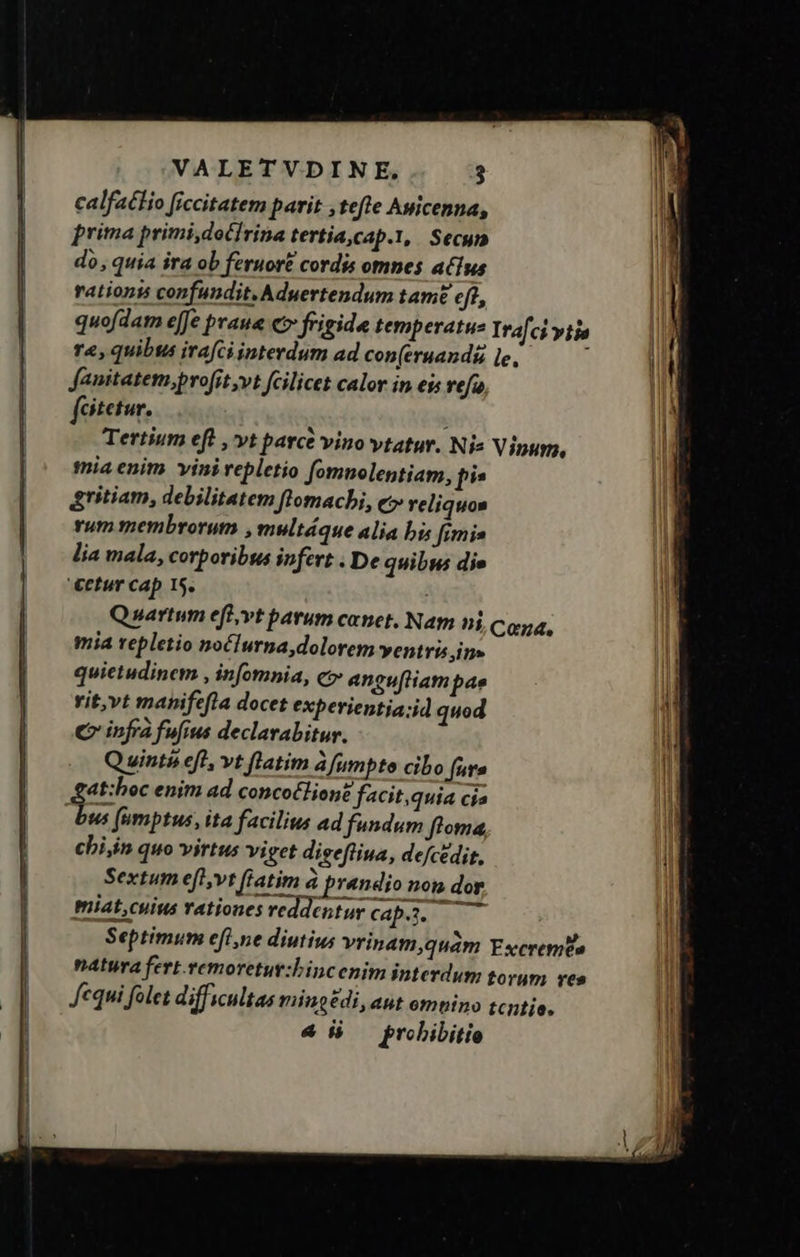 VALETVDINE. 3
calfactio ſiccitatem parit , teſte Auicenna,
prima primi,doctrina tertia,cap.1, Secun
do, quia ira ob feruorẽ cordis omnes actus
rationis confundit. Aduertendum tamẽ eſt,
quoſdam eſſe prauæ & frigidæ temperatu= Iraſci vtis
ræ, quibus iraſci interdum ad conſeruandã le.
ſanitatem,proſit,vt ſcilicet calor in eis reſu
ſcitetur.
Tertium eſt , vt parcè vino vtatur. Ni= Vinum.
mia enim vini repletio ſomnolentiam, pi=
gritiam, debilitatem ſtomachi, & reliquo=
rum membrorum , multáque alia his ſimi=
lia mala, corporibus infert . De quibus di=
cetur cap 15.
Quartum eſt,vt parum cœnet. Nam ni Cœna.
mia repletio nocturna,dolorem ventris,in=
quietudinem , inſomnia, & anguſtiam pa=
rit,vt manifeſta docet experientia:id quod
& infrà fuſius declarabitur.
Quintũ eſt, vt ſtatim à ſumpto cibo ſur=
gat:hoc enim ad concoctionẽ facit,quia ci=
bus ſumptus, ita facilius ad fundum ſtoma
chi,in quo virtus viget digeſtiua, deſcẽdit.
Sextum eſt,vt ſtatim à prandio non dor
miat,cuius rationes reddentur cap.3.
Septimum eſt,ne diutius vrinam,quàm Excremẽ=
natura fert remoretur:hinc enim interdum torum re=
ſequi ſolet difficultas mingẽdi, aut omnino tentio.
a ij prohibitio